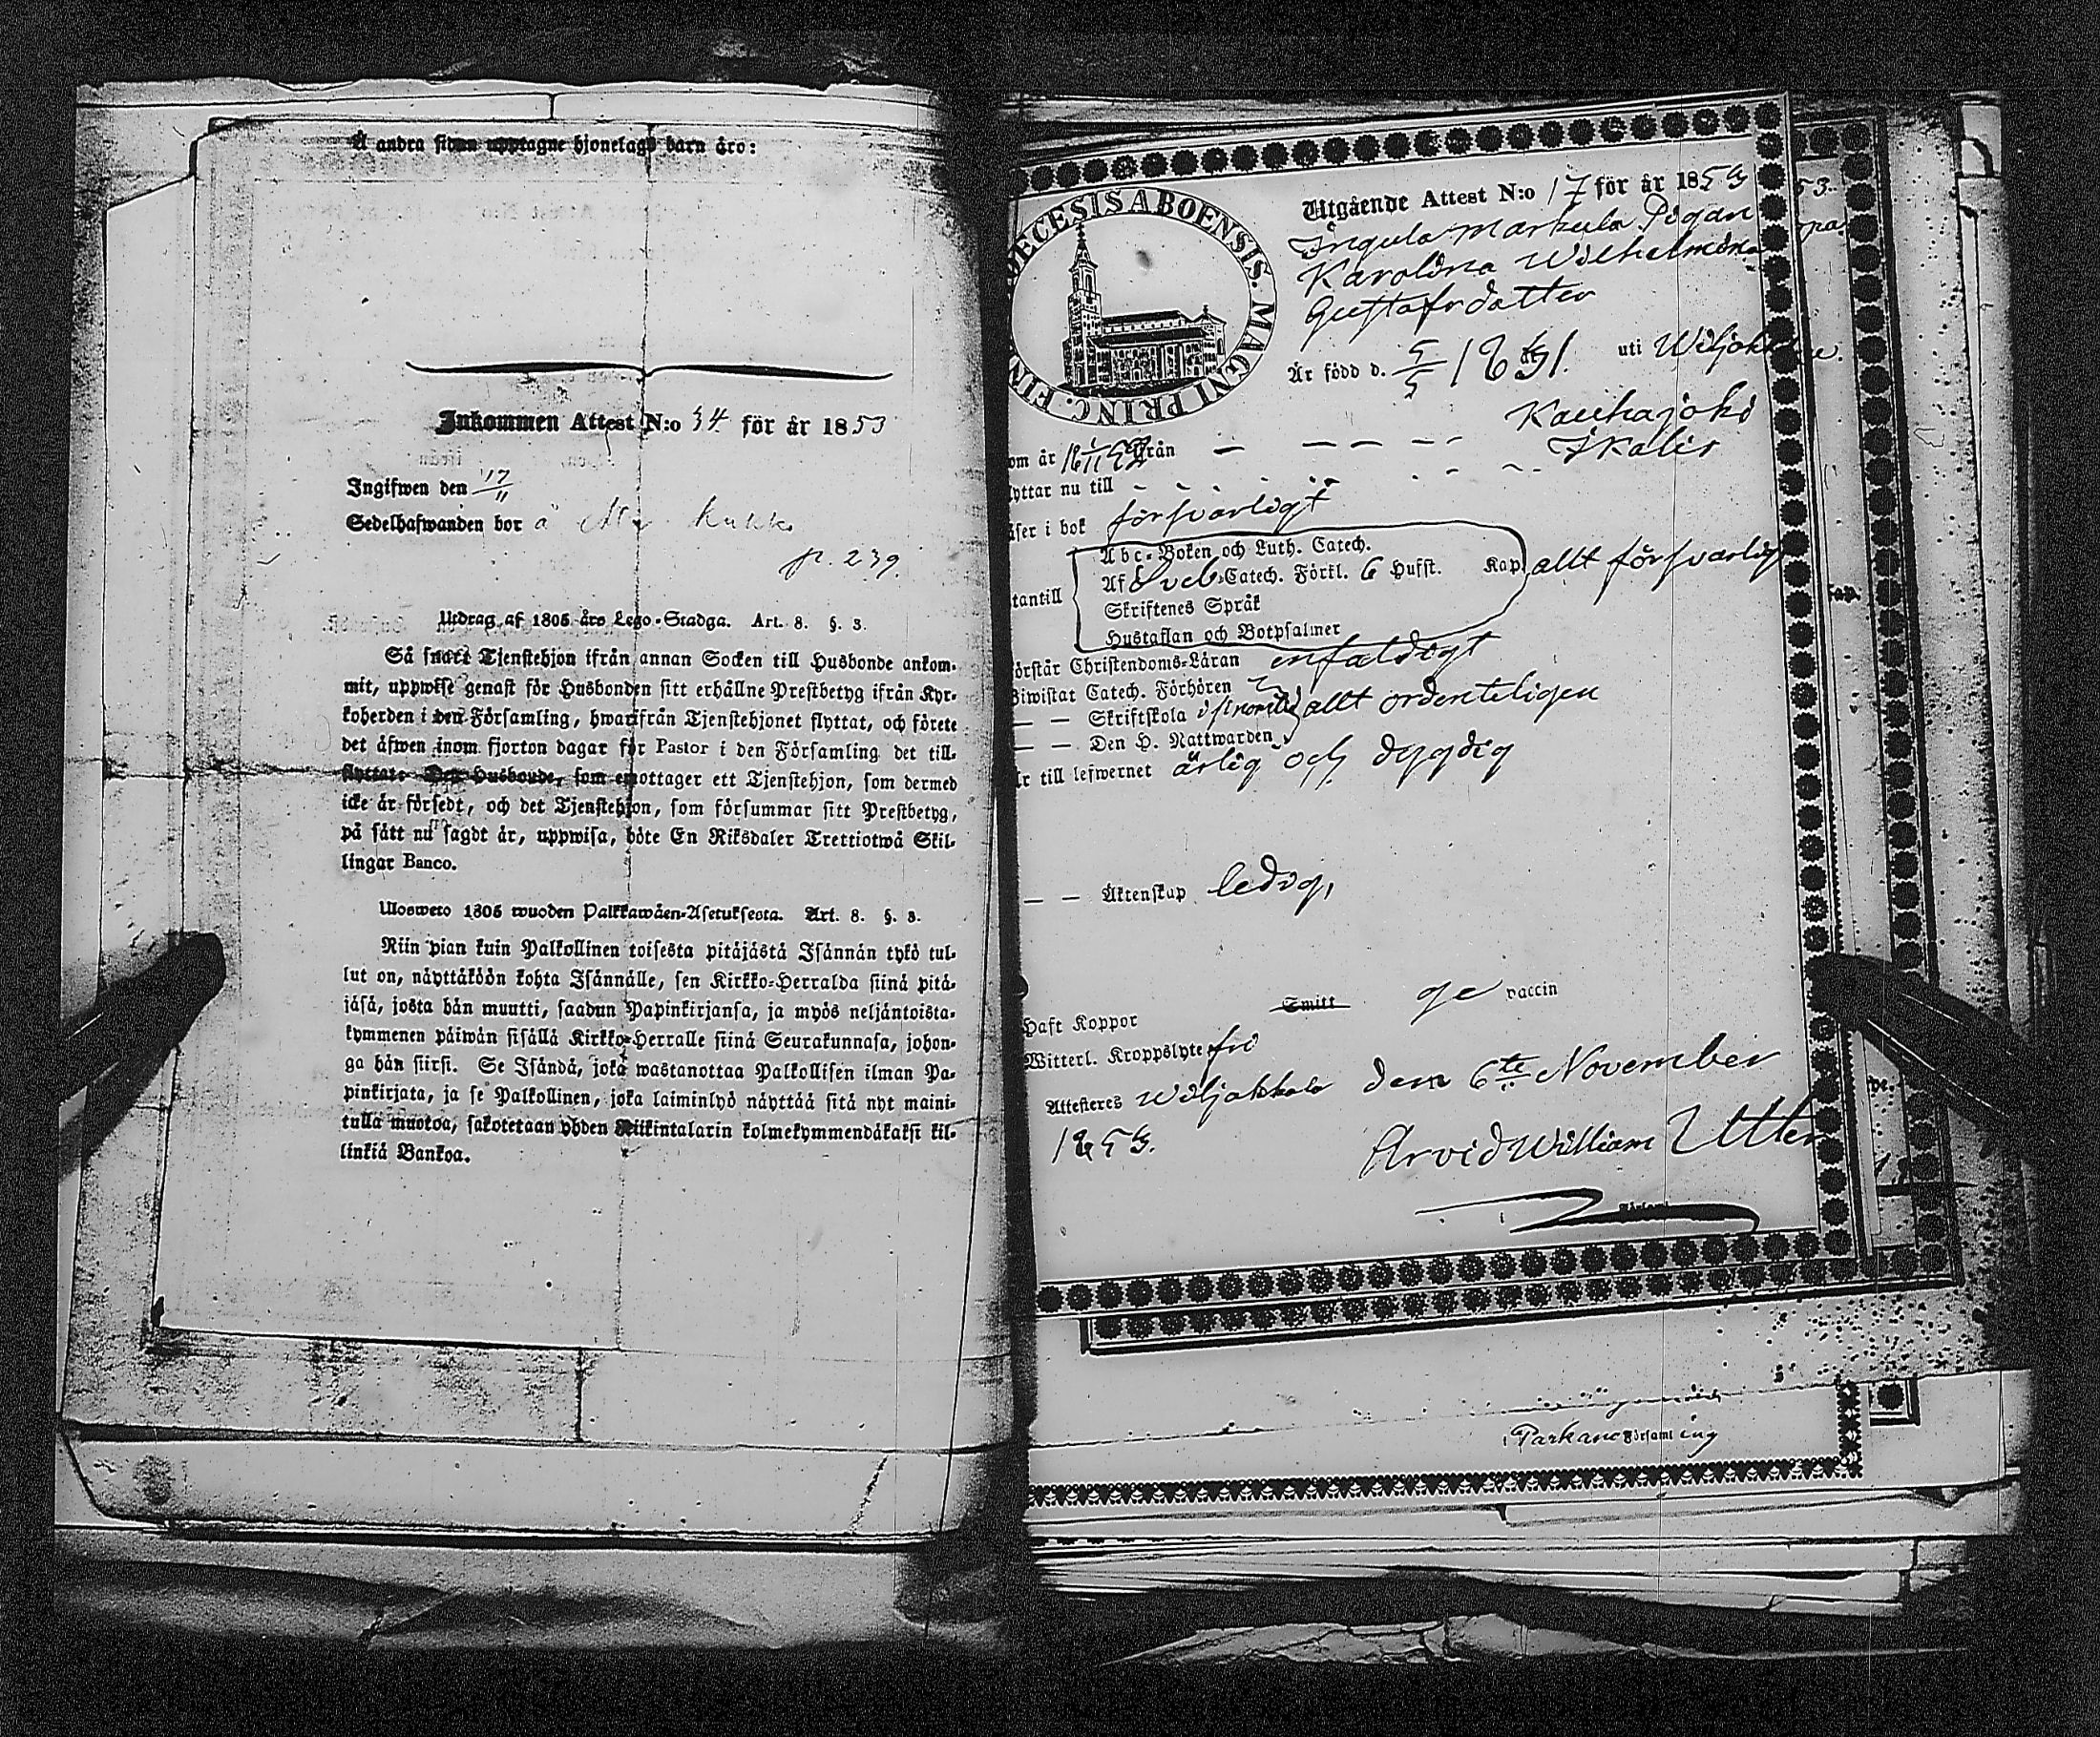 Å andra sidan upptagne hjonelags barn äro:
Inkommen Attest N:o 34 för år 1853
Ingifwen den 17/11
Sedelhafwanden bor å
p. 239.
Utdrag af 1805 års Lego-Stadga. Art. 8. §. 3.
Så snart Tjenstehjon ifrån annan Socken till Husbonde ankom-
mit, uppwise genast för Husbonden sitt erhållne Prestbetyg ifrån Kyr-
koherden i den Församling, hwarifrån Tjenstehjonet flyttat, och förete
det äfwen inom fjorton dagar för Pastor i den Församling det till-
flyttat. Den Husbonde, som emottager ett Tjenstehjon, som dermed
icke är försedt, och det Tjenstehjon, som försummar sitt Prestbetyg,
på sätt nu sagdt är, uppwisa, böte En Riksdaler Trettiotwå Skil-
lingar Banco.
Ulosweto 1805 wuoden Palkkawäen-Asetuksesta. Art. 8. §. 3.
Niin pian kuin Palkollinen toisesta pitäjästä Isännän tykö tul-
lut on, näyttäköön kohta Isännälle, sen Kirkko-Herralda siinä pitä-
jäsä, josta hän muutti, saadun Papinkirjansa, ja myös neljäntoista-
kymmenen päiwän sisällä Kirkko-Herralle siinä Seurakunnasa, johon-
ga hän siirsi. Se Isändä, joka wastanottaa Palkollisen ilman Pa-
pinkirjata, ja se Palkollinen, joka laiminlyö näyttää sitä nyt maini-
tulla muotoa, sakotetaan yhden Riikintalarin kolmekymmendäkaksi kil-
linkiä Bankoa.
DECESIS ABOENSIS. MAGNI PRINC. FIN
Utgående Attest N:o 17 för år 1853
Ingula Markula Pigan
Karolina Wilhelmina
Gustafsdotter
Är född d. 5/5 1831. uti Wiljakkala
om år 1/11 52 från — — — — Kauhajoki
yttar nu till Ikalis
äser i bok försvarligt
Abc-Boken och Luth. Catech.
Af Sveb. Catech. Förkl. 6 Hufst. Kap. allt försvarligt
tantill
Skriftenes Språk
Hustaflan och Botpsalmer
örstår Christendoms-Läran enfaldigt
Biwistat Catech. Förhören
— — Skriftskola allt ordenteligen
— — Den H. Nattwarden
r till lefwernet ärlig och dygdig
— — Äktenskap ledig,
Haft Koppor Smitt ge vaccin
Witterl. Kroppslyte fri
Attesteres Wiljakkala dem 6te November
1853.
Arvid William Utter
Församl
53.
Kap.
i Parkano Församling